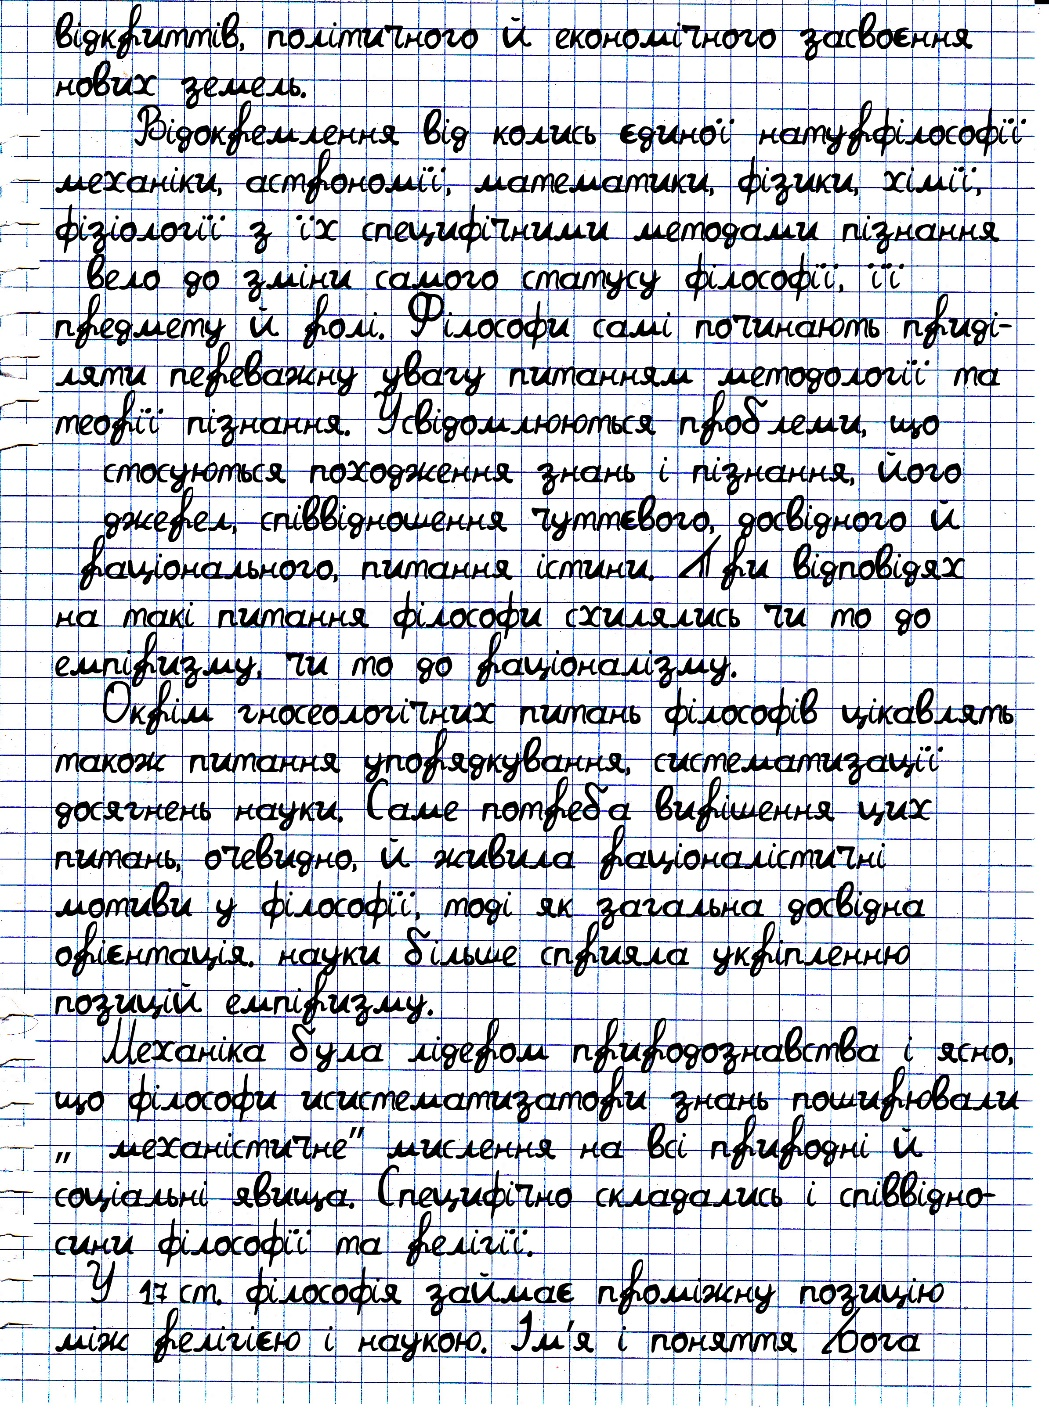 відкриттів, політичного й економічного засвоєння
нових земель.
Відокремлення від колись єдиної натурфілософії
механіки, астрономії, математики, фізики, хімії,
фізіології з їх специфічними методами пізнання
вело до зміни самого статусу філософії, її
предмету й ролі. Філософи самі починають приді-
ляти переважну увагу питанням методології та
теорії пізнання. Усвідомлюються проблеми, що
стосуються походження знань і пізнання, його
джерел, співвідношення чуттєвого, досвідного й
раціонального, питання істини. При відповідях
на такі питання філософи схилялись чи то до
емпіризму, чи то до раціоналізму.
Окрім гносеологічних питань філософів цікавлять
також питання упорядкування, систематизації
досягнень науки. Саме потреба вирішення цих
питань, очевидно, й живила раціоналістичні
мотиви у філософії, тоді як загальна досвідна
орієнтація. науки більше сприяла укріпленню
позицій емпіризму.
Механіка була лідером природознавства і ясно,
що філософи исистематизатори знань поширювали
„ механістичне" мислення на всі природні й
соціальні явища. Специфічно складались і співвідно-
сини філософії та релігії.
У 17 ст. філософія займає проміжну позицію
між релігією і наукою. Ім'я і поняття Бога